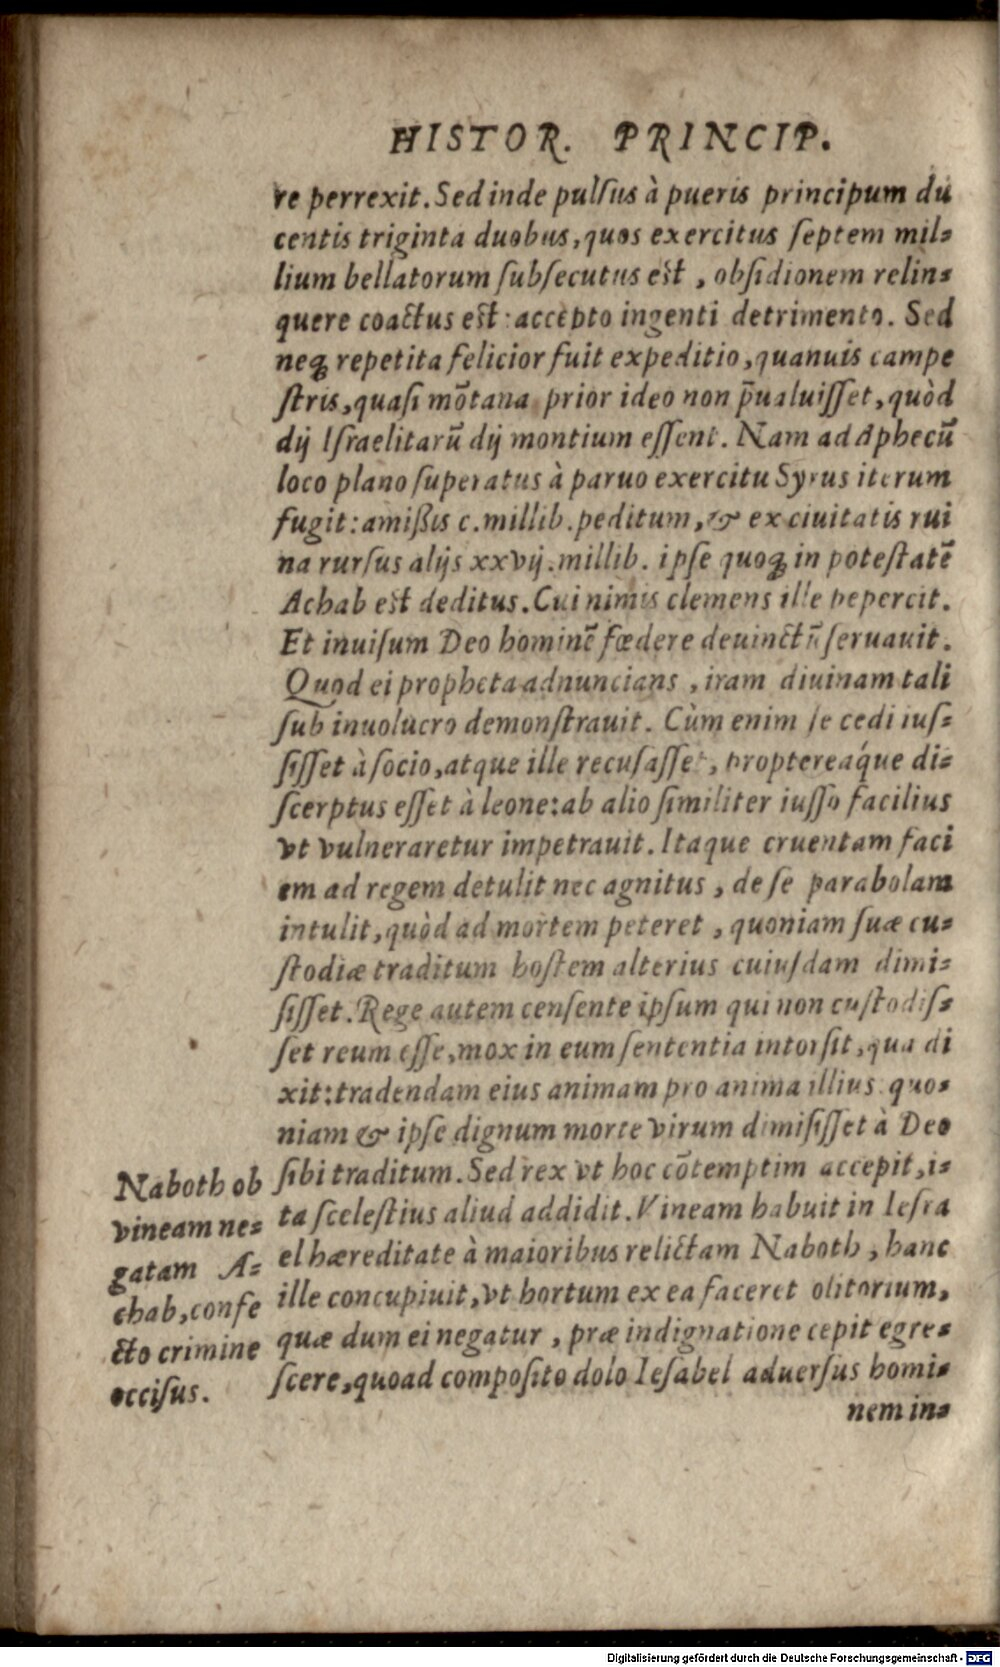 HISTOR. PRINCIP.
re perrexit. Sed inde pulsus à pueris principum du
centis triginta duobus, quos exercitus septem mil=
lium bellatorum subsecutus est, obsidionem relin=
quere coactus est: accepto ingenti detrimento. Sed
neqꝫ repetita felicior fuit expeditio, quanuis campe
stris, quasi mõtana prior ideo non p̃ualuisset, quòd
dij Israelitarũ dij montium essent. Nam ad Aphecũ
loco plano superatus à paruo exercitu Syrus iterum
fugit: amißis c. millib. peditum, & ex ciuitatis rui
na rursus alijs xxvij. millib. ipse quoqꝫ in potestatẽ
Achab est deditus. Cui nimis clemens ille pepercit.
Et inuisum Deo hominẽ fœdere deuinctũ seruauit.
Quod ei propheta adnuncians, iram diuinam tali
sub inuolucro demonstrauit. Cùm enim se cedi ius=
sisset à socio, atque ille recusasset, proptereaq́ue di=
scerptus esset à leone: ab alio similiter iusso facilius
vt vulneraretur impetrauit. Itaque cruentam faci
em ad regem detulit nec agnitus, de se parabolam
intulit, quòd ad mortem peteret, quoniam suæ cu=
stodiæ traditum hostem alterius cuiusdam dimi=
sisset. Rege autem censente ipsum qui non custodis=
set reum esse, mox in eum sententia intorsit, qua di
xit: tradendam eius animam pro anima illius: quo=
niam & ipse dignum morte virum dimisisset à Deo
sibi traditum. Sed rex vt hoc cõtemptim accepit, i=
ta scelestius aliud addidit. Vineam habuit in Iesra
el hæreditate à maioribus relictam Naboth, hanc
ille concupiuit, vt hortum ex ea faceret olitorium,
quæ dum ei negatur, præ indignatione cepit egre=
scere, quoad composito dolo Iesabel aduersus homi=
nem in=
Naboth ob
vineam ne=
gatam A=
chab, confe
cto crimine
occisus.
Digitalisierung gefördert durch die Deutsche Forschungsgemeinschaft - DFG